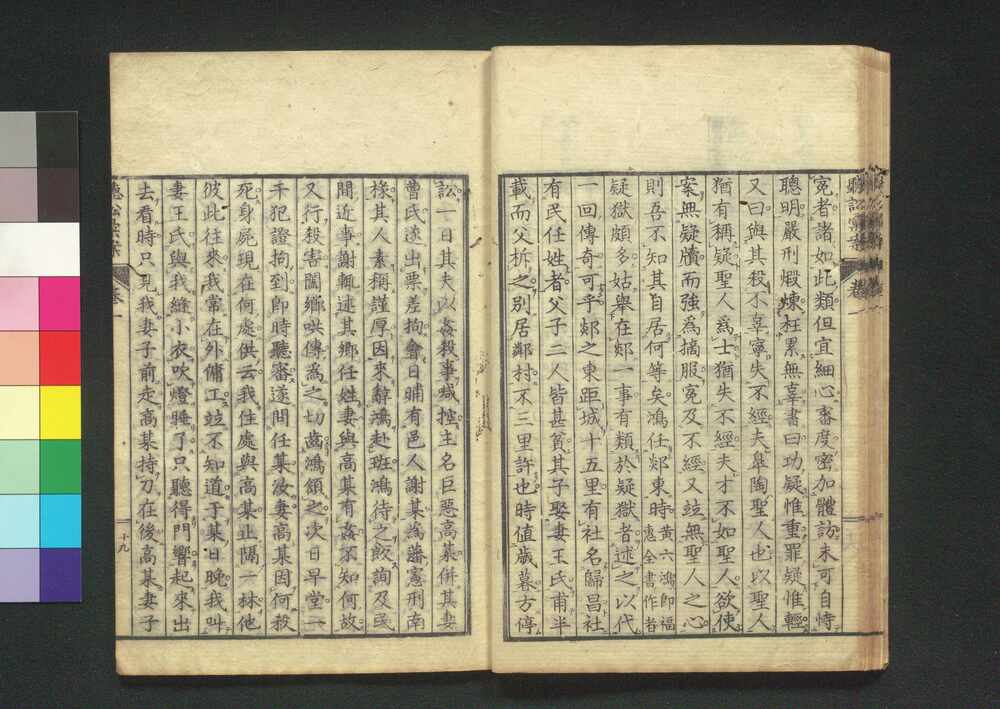 寃者諸如此類但宜細心審度密加體訪未可自恃
聰明嚴刑煅煉枉累無辜書曰功疑惟重罪疑惟輕
又曰與其殺不辜寧失不經夫皐陶聖人也以聖人
猶有稱疑聖人爲士猶失不經夫才不如聖人欲使
案無疑牘而強為摘服寃及不經又竝無聖人之心
則吾不知其自居何等矣鴻任郯東時黃六鴻即福惠全書作者
疑獄頗多姑舉在郯一事有類於疑獄者述之以代
一回傳奇可乎郯之東距城十五里有社名歸昌社
有民任姓者父子二人皆甚貧其子娶妻王氏甫半
載而父析之別居鄰村不三里許也時值歳暮方停
訟一日其夫以姦殺事喊控主名巨惡高某併其妻
曹氏遂出票差拘會日晡有邑人謝某為藩憲刑南
椽其人素稱謹厚因來辭鴻赴班鴻待之飯詢及民
間近事謝輒述其鄉任姓妻與高某有姦不知何故
又行殺害闔鄉哄傳為之切齒鴻頷之次日早堂一
干犯證拘到即時聽審遂問任某汝妻高某因何殺
死身屍現在何處供云我住處與高某止隔一林他
彼此往來我常在外傭工竝不知道于某日晚我叫
妻王氏與我縫小衣吹燈睡了只聽得門響起來出
去看時只見我妻子前走高某持刀在後高某妻子
聽訟彙案
卷一
十九